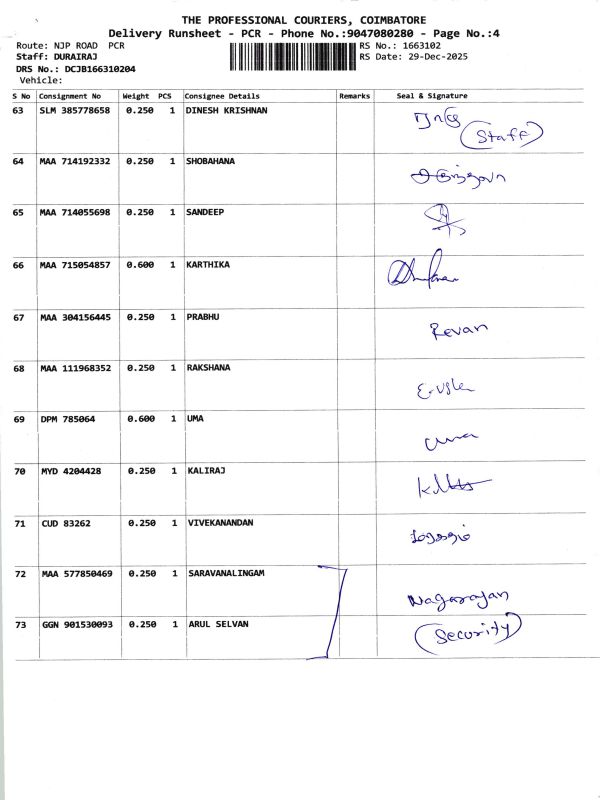 THE PROFESSIONAL COURIERS, COIMBATORE
Delivery Runsheet - PCR - Phone No.:9047080280 - Page No.:4
Route: NJP ROAD PCR
RS No.: 1663102
Staff: DURAIRAJ
RS Date: 29-Dec-2025
DRS No.: DCJB166310204
Vehicle:
S No Consignment No Weight PCS Consignee Details Remarks Seal & Signature
63 SLM 385778658 0.250 1 DINESH KRISHNAN
(Staff)
64 MAA 714192332 0.250 1 SHOBAHANA
65 MAA 714055698 0.250 1 SANDEEP
66 MAA 715054857 0.600 1 KARTHIKA
67 MAA 304156445 0.250 1 PRABHU
Revan
68 MAA 111968352 0.250 1 RAKSHANA
69 DPM 785064 0.600 1 UMA
uma
70 MYD 4204428 0.250 1 KALIRAJ
71 CUD 83262 0.250 1 VIVEKANANDAN
72 MAA 577850469 0.250 1 SARAVANALINGAM
Nagarajan
73 GGN 901530093 0.250 1 ARUL SELVAN
(Security)